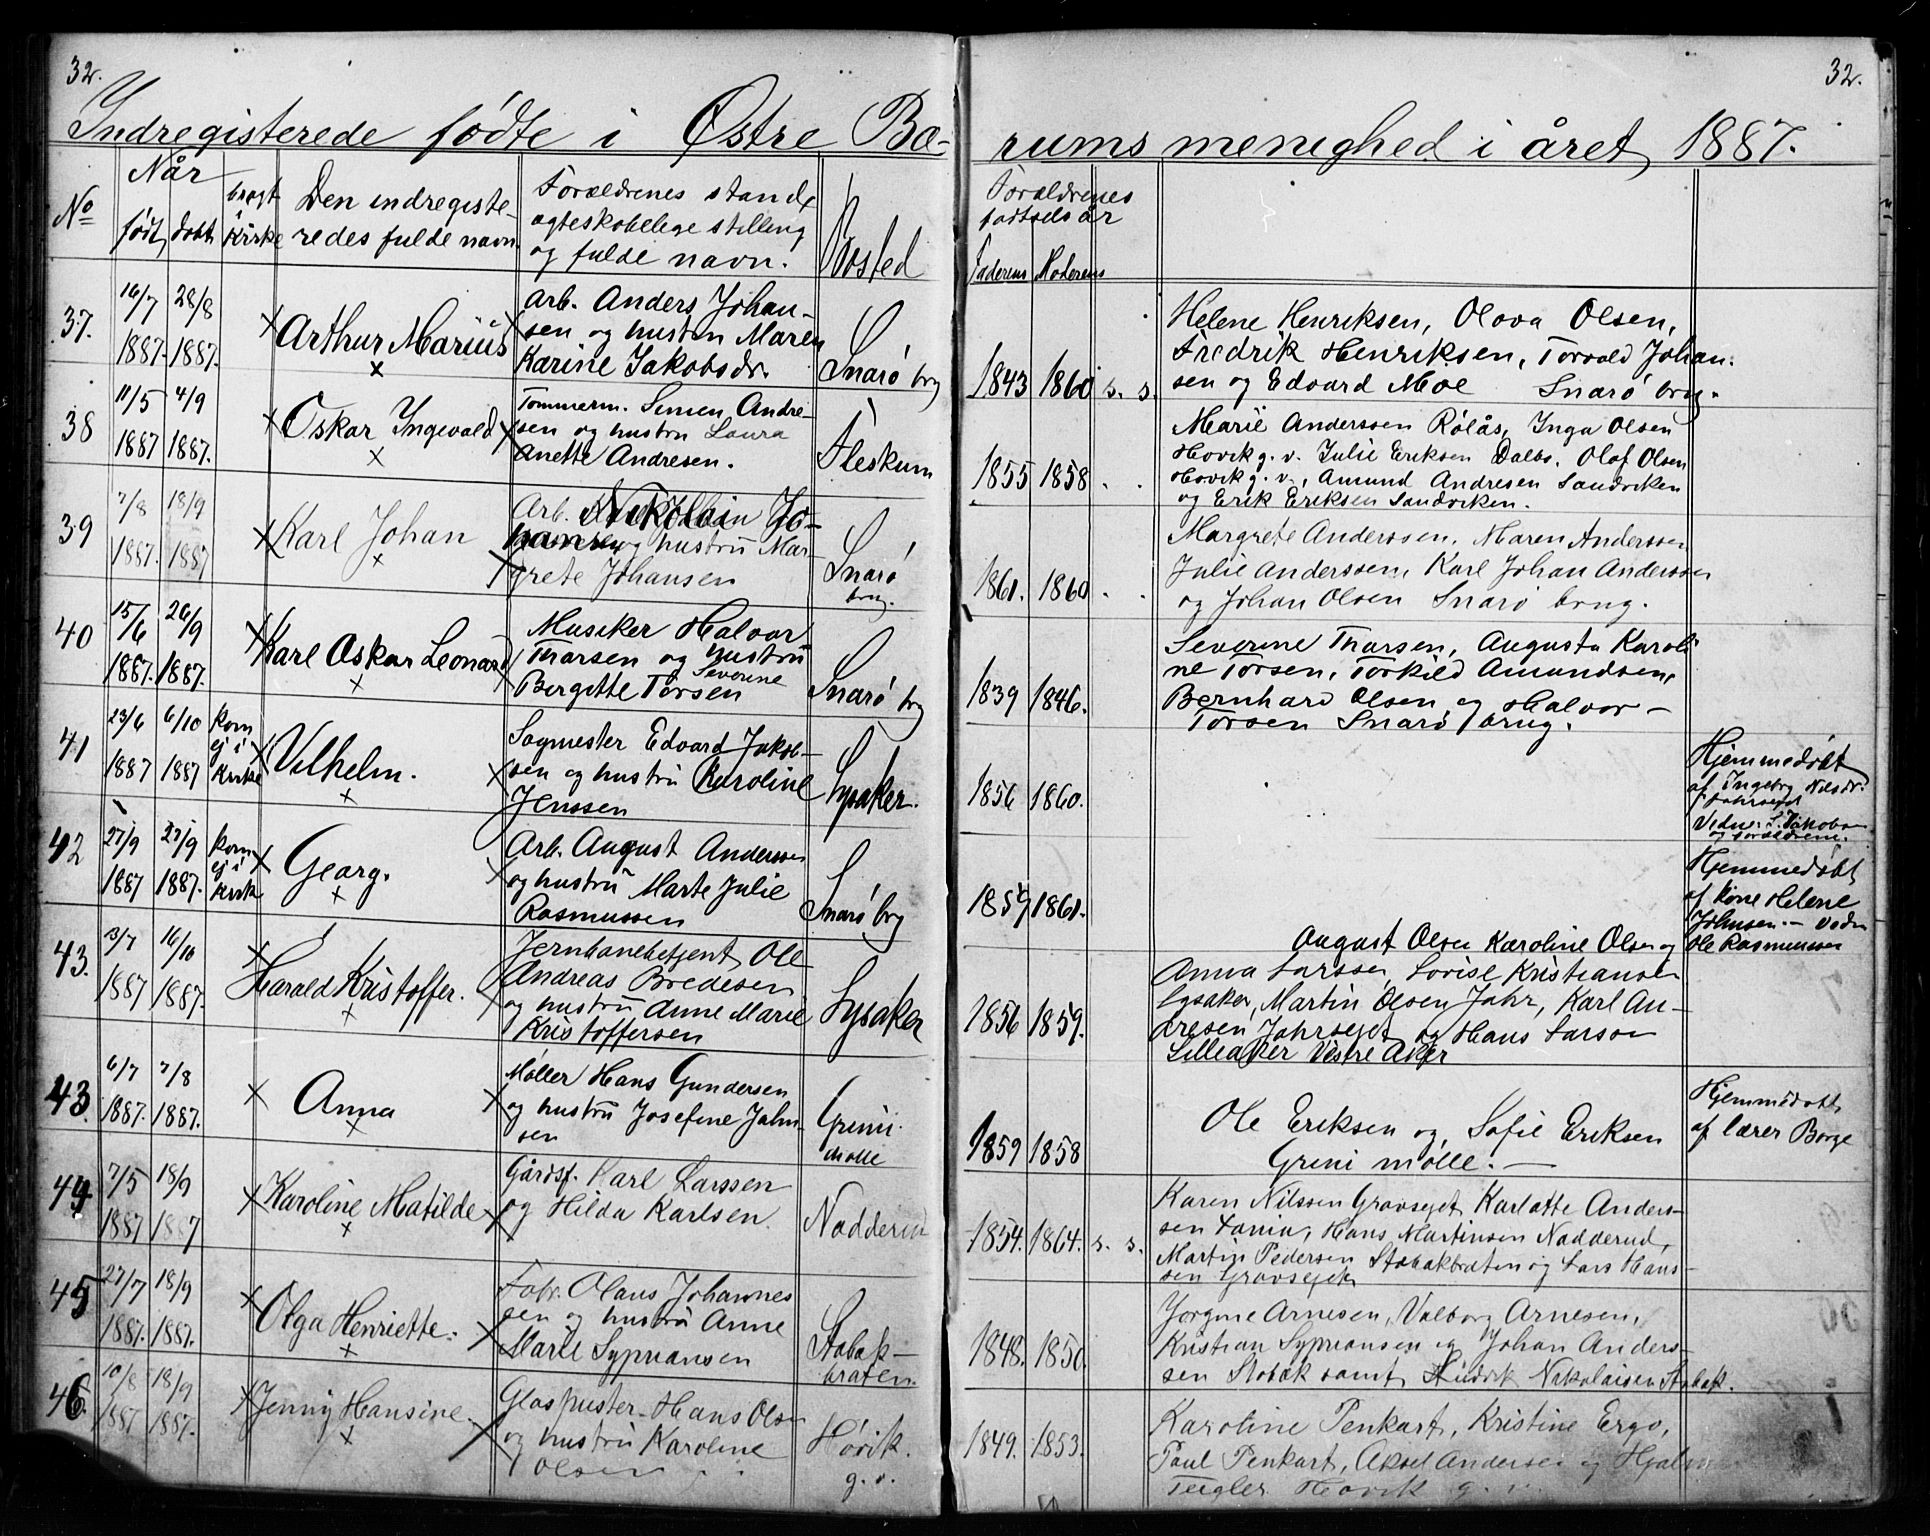 32.
32.
Indregisterede fødte i Østre Bæ-
rums menighed i året 1887.
No
Når
født
døbt
bragt i kirke
Den indregiste-
redes fulde navn
Forældrenes stand,
ægteskabelige stilling
og fulde navn.
Bosted
Forældrenes
fødselsår
Faderens Moderens
37.
16/7 28/8
1887. 1887.
Arthur Marius
Arb. Anders Johan-
sen og hustru Maren
Karine Jakobsdr.
Snarø brg
1843 1860 s. s.
Helene Henriksen, Olova Olsen,
Fredrik Henriksen, Torvald Johan-
sen og Edvard Moe Snarø brug.
38
11/5 4/9
1887 1887.
Oskar Ingevald
Tømmerm. Simen Andre-
sen og hustru Laura
Anette Andresen.
Fleskum
1855 1858
Marie Anderssen Rølås, Inga Olsen
Høvik g. v. Julie Eriksen Dalbo. Olaf Olsen
Høvik g. v., Amund Andresen Sandviken
og Erik Eriksen Sandviken.
39
7/8 18/9
1887. 1887
Karl Johan
Arb. Nikolai Jo-
hansen og hustru Mar-
grete Johansen
Snarø
brug.
1861. 1860
Margrete Anderssen, Maren Anderssen
Julie Anderssen, Karl Johan Anderssen
og Johan Olsen Snarø brug.
40
15/6 26/9
1887. 1887.
Karl Oskar Leonard
Musiker Halvor
Tharsen og hustru
Severine
Bergitte Torsen
Snarø brg
1839 1846.
Severine Tharsen, Augusta Karoli
ne Torsen, Torkild Amundsen,
Bernhard Olsen og Halvor
Torsen Snarø brug.
41
23/6 6/10 kom
ej i
1887 1887 kirke
Vilhelm.
Sagmester Edvard Jakob-
sen og hustru Karoline
Jenssen
Lysaker.
1856 1860.
Hjemmedøbt
af Ingeborg Nilsdr.
Jahrseget
Vidne: L. Jakobsen
og forældrene.
42
27/9 27/9 kom
ej i
1887 1887. kirk
Georg.
Arb. August Anderssen
og hustru Marte Julie
Rasmussen
Snarø brg
1859 1861.
Hjemmedøbt
af Kone Helene
Johnsen. — Vidn
Ole Rasmussen
43.
13/7 16/10
1887 1887.
Harald Kristoffer.
Jernbanebetjent Ole
Andreas Bredesen
og hustru Anne Marie
Kristoffersen
Lysaker
1856 1859.
August Olsen Karoline Olsen og
Anna Larssen, Lovise Kristiansen
Lysaker, Martin Olsen Jahr, Karl An-
dresen Jahrseget og Hans Larson
Lilleaker Vestre Aker
43.
6/7 7/8
1887. 1887.
Anna
Møller Hans Gundersen
og hustru Josefine John-
sen
Grini
Mølle
1859 1858
Ole Eriksen og Sofie Eriksen
Grini mølle. —
Hjemmedøbt
af lærer Borge
44
7/5 18/9
1887 1887
Karoline Matilde
Gårdsf. Karl Larssen
og Hilda Karlsen.
Nadderud
1854. 1864. s. s.
Karen Nilssen Gravseget Karlotte Anders-
sen Fania, Hans Martinsen Nadderud,
Martin Pedersen Stabækbråten og Lars Hans-
sen Gravseget
45
27/7 18/9
1887. 1887.
Olga Henriette.
Fabr. Olaus Johannes
sen og hustru Anne
Marie Sypriansen
Stabæk-
bråten.
1848. 1850.
Jørgine Arnesen, Valborg Arnesen,
Kristian Sypriansen og Johan Anders-
sen Stabæk samt Nikolaisen Stabæk.
46.
10/8 18/9
1887 1887.
Jenny Hansine.
Glaspuster Hans Olsen
og hustru Karoline
Olsen
Høvik.
g. v.
1849. 1853.
Karoline Penkart, Kristine Ergo,
Paul Penkart, Aksel Andersen og Hjalmar
Teigler Høvik g. v.